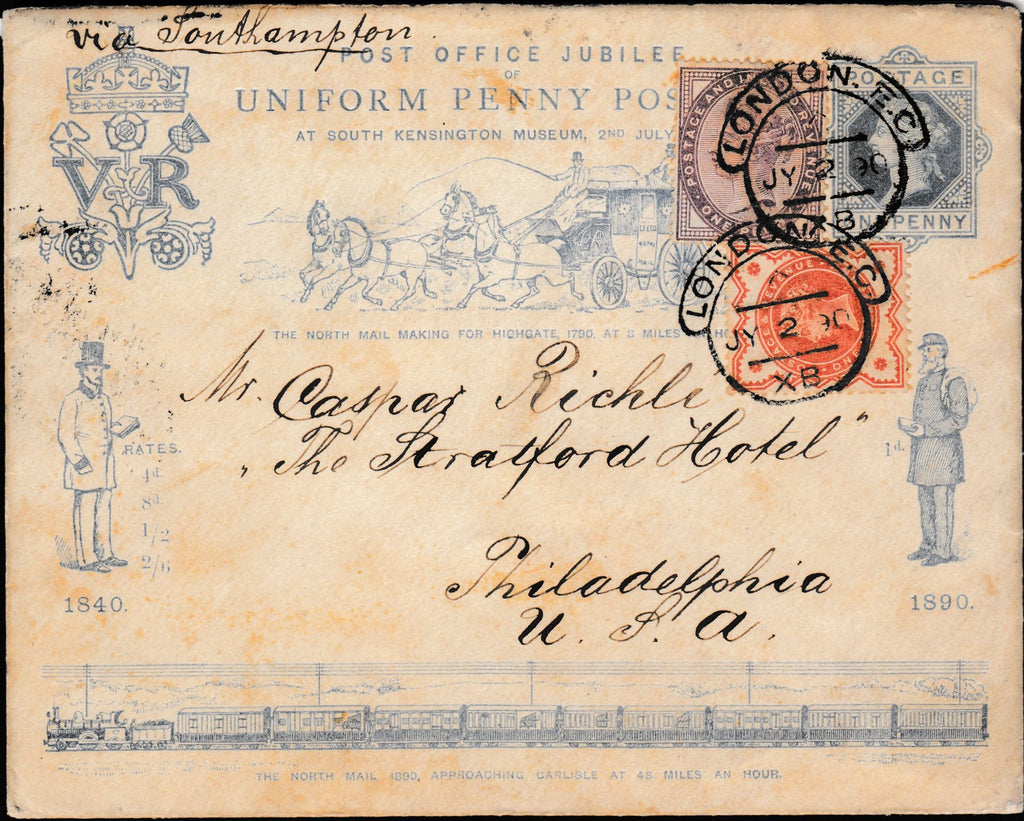 via Southampton.
POST OFFICE JUBILEE
OF
UNIFORM PENNY POS
AT SOUTH KENSINGTON MUSEUM, 2ND JULY
VR
POSTAGE
ONE PENNY
POSTAGE AND REVENUE
ONE
LONDON. E.C.
JY 2 90
XB
LONDON E.C.
JY 2 90
XB
THE NORTH MAIL MAKING FOR HIGHGATE, 1790, AT 8 MILES
Mr. Caspar Richle
"The Stratford Hotel"
RATES.
4d.
8d.
1/2
2/6
1d.
Philadelphia
U. S. A.
1840.
1890.
THE NORTH MAIL 1890, APPROACHING CARLISLE AT 48 MILES AN HOUR.